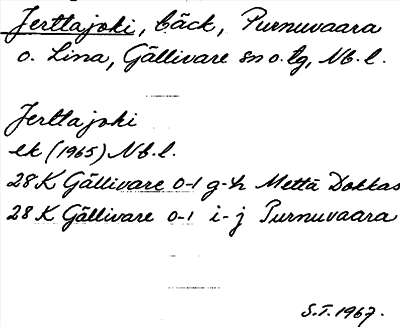 Jerttajoki, bäck, Purnuvaara
o. Lina, Gällivare sn o. tg, Nb. l.
Jerttajoki
ek (1965) Nb. l.
28 K Gällivare 0-1 g-h Mettä Dokkas
28 K Gällivare 0-1 i-j Purnuvaara
S.T. 1967.